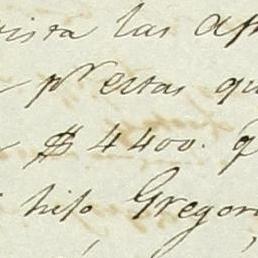 vista las
pr estas qu
$ 4400. q
hijo Gregor